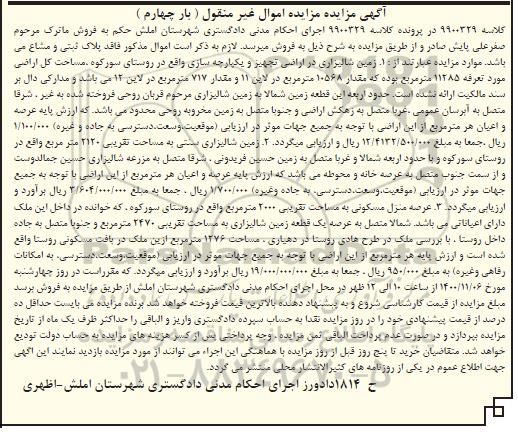 آگهی مزایده مزایده اموال غیر منقول ( بار چهارم )
کلاسه ۹۹۰۰۳۲۹ در پرونده کلاسه ۹۹۰۰۳۲۹ اجرای احکام مدنی دادگستری شهرستان املش حکم به فروش ماترک مرحوم
صفرعلی پایش صادر و از طریق مزایده به شرح ذیل به فروش میرسد. لازم به ذکر است اموال مذکور فاقد پلاک ثبتی و مشاع می
باشد. موارد مزایده عبارتند از : ۱. زمین شالیزاری در اراضی تجهیز و یکپارچه سازی واقع در روستای سورکوه .مساحت کل اراضی
مورد تعرفه ۱۱۲۸۵ مترمربع بوده که مقدار ۱۰۵۶۸ مترمربع در لاین ۱۱ و مقدار ۷۱۷ مترمربع در لاین ۱۲ می باشد و مدارکی دال بر
سند مالکیت ارائه نشده است. حدود اربعه این قطعه زمین شمالا به زمین شالیزاری مرحوم قربان روحی فروخته شده به غیر . شرقا
متصل به آبرسان عمومی .غربا متصل به زهکش اراضی و جنوبا متصل به زمین مخروبه روحی محدود می باشد. که ارزش پایه عرصه
و اعیان هر مترمربع از این اراضی با توجه به جمیع جهات موثر در ارزیابی (موقعیت،وسعت،دسترسی به جاده و غیره) ۱/۱۰۰/۰۰۰
ریال .جمعا به مبلغ ۱۲/۴۱۳۲/۵۰۰/۰۰۰ ریال و ارزیابی میگردد. ۲. زمین شالیزاری سنتی به مساحت تقریبی ۲۱۲۰ متر مربع واقع در
روستای سورکوه و با حدود اربعه شمالا و غربا متصل به زمین حسین فریدونی . شرقا متصل به مزرعه شالیزاری حسین جمالدوست
و از سمت جنوب متصل به عرصه خانه و محوطه می باشد که ارزش پایه عرصه و اعیان هر مترمربع از این اراضی با توجه به جمیع
جهات موثر در ارزیابی (موقعیت،وسعت،دسترسی، به جاده وغیره) ۱/۷۰۰/۰۰۰ ریال . جمعا به مبلغ ۳/۶۰۴/۰۰۰/۰۰۰ ریال برآورد و
ارزیابی میگردد. ۳. عرصه منزل مسکونی به مساحت تقریبی ۲۰۰۰ مترمربع واقع در روستای سورکوه . که خوانده در داخل این ملک
دارای اعیاناتی می باشد. شمالا متصل به عرصه یک قطعه زمین شالیزاری به مساحت تقریبی ۲۴۷۰ مترمربع و جنوبا متصل به جاده
داخل روستا . با بررسی ملک در طرح هادی روستا در دهیاری . مساحت ۱۲۷۶ مترمربع ازین ملک در بافت مسکونی روستا واقع
شده است و ارزش پایه هر مترمربع از این اراضی با توجه به جمیع جهات موثر در ارزیابی (موقعیت،وسعت،دسترسی، به امکانات
رفاهی وغیره) به مبلغ ۹۵۰/۰۰۰ ریال . جمعا به مبلغ ۱۹/۰۰۰/۰۰۰/۰۰۰ ریال برآورد و ارزیابی میگردد. که مقرراست در روز چهارشنبه
مورخ ۱۴۰۰/۱۱/۰۶ از ساعت ۱۰ الی ۱۲ ظهر در محل اجرای احکام مدنی دادگستری شهرستان املش از طریق مزایده به فروش برسد
مبلغ مزایده از قیمت کارشناسی شروع و به پیشنهاد دهنده بالاترین قیمت فروخته خواهد شد برنده مزایده می بایست حداقل ده
درصد از قیمت پیشنهادی خود را در روز مزایده نقدا به حساب سپرده دادگستری واریز و الباقی را حداکثر ظرف یک ماه از تاریخ
مزایده بپردازد و در صورت عدم پرداخت الباقی ثمن مزایده . وجه پرداختی پس از کسر هزینه های مزایده به حساب دولت تودیع
خواهد شد. متقاضیان خرید تا پنج روز قبل از روز مزایده با هماهنگی این اجراء می توانند از مورد مزایده بازدید نمایند این آگهی
جهت اطلاع عموم در یکی از روزنامه های کثیرالانتشار محلی منتشر می گردد.
ح ۱۸۱۴دادورز اجرای احکام مدنی دادگستری شهرستان املش-اظهری